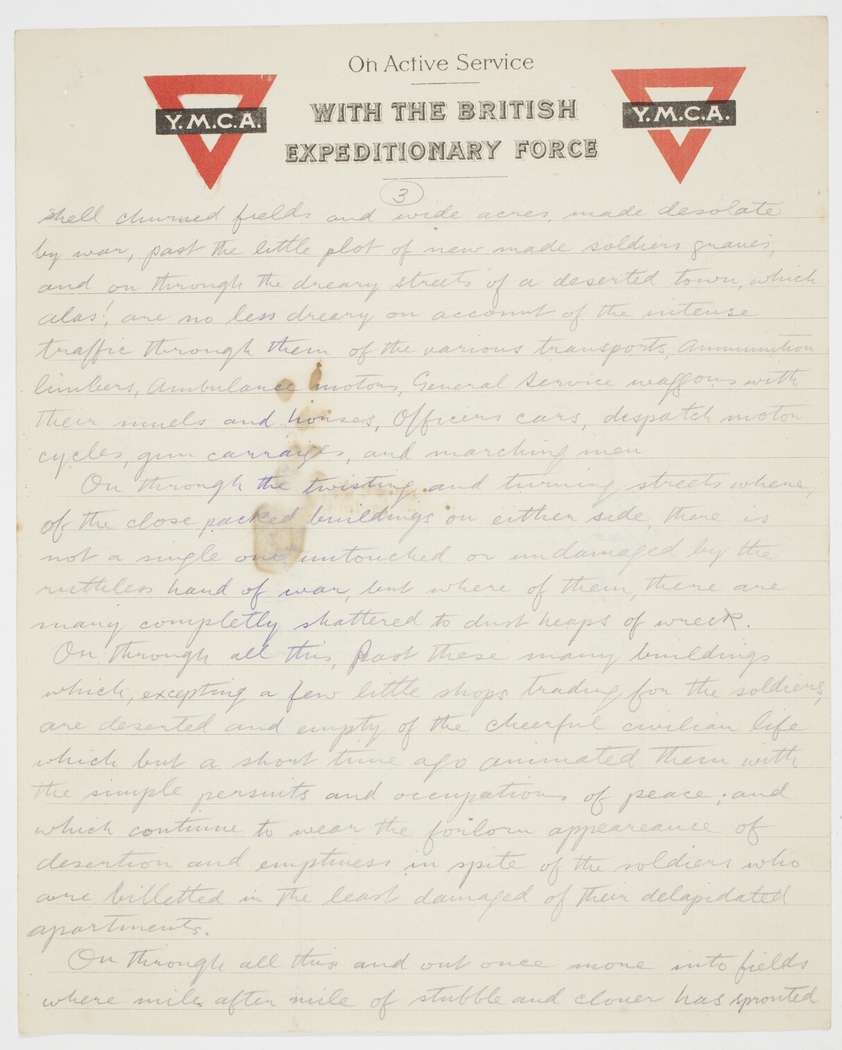 On Active Service
Y.M.C.A. WITH THE BRITISH Y.M.C.A.
EXPEDITIONARY FORCE
3
shell churned fields and wide acres, made desolate
by war, past the little plot of new made soldiers graves,
and on through the dreary streets of a deserted town, which
alas! are no less dreary on account of the intense
traffic through them of the various transports, Ammunition
limbers, Ambulance motors, General Service waggons with
their muels and horses, Officers cars, despatch motor
cycles, gun carraiges, and marching men
On through the twisting and turning streets where,
of the close packed buildings on either side, there is
not a single one untouched or undamaged by the
ruthless hand of war, but where of them, there are
many completly shattered to dust heaps of wreck.
On through all this, past these many buildings
which, excepting a few little shops trading for the soldiers,
are deserted and empty of the cheerful civilian life
which but a short time ago animated them with
the simple persuits and occupations of peace; and
which continue to wear the forlorn appeareance of
desertion and emptiness in spite of the soldiers who
are billetted in the least damaged of their delapidated
apartments.
On through all this and out once more into fields
where mile after mile of stubble and clover has sprouted